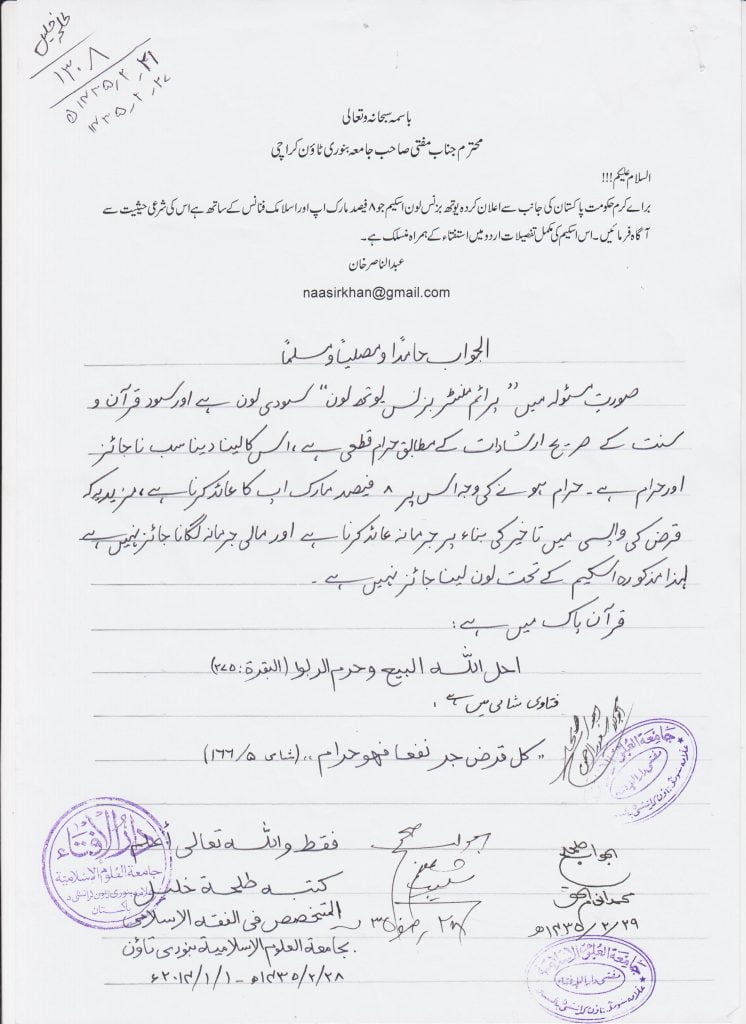 طلحہ خلیل
۱۳۰۸
باسمہ سبحانہ وتعالی
محترم جناب مفتی صاحب جامعہ بنوری ٹاؤن کراچی
السلام علیکم!!!
برائے کرم حکومت پاکستان کی جانب سے اعلان کردہ یوتھ بزنس لون اسکیم جو ۸ فیصد مارک اپ اور اسلامک فنانس کے ساتھ ہے اس کی شرعی حیثیت سے
آگاہ فرمائیں۔ اس اسکیم کی مکمل تفصیلات اردو میں استفتاء کے ہمراہ منسلک ہے۔
عبدالناصر خان
naasirkhan@gmail.com
الجواب حامدًا ومصلیًا ومسلمًا
صورتِ مسئولہ میں "پرائم منسٹر بزنس یوتھ لون" سودی لون ہے اور سود قرآن و
سنت کے صریح ارشادات کے مطابق حرام قطعی ہے، اس کا لینا دینا سب ناجائز
اور حرام ہے۔ حرام ہونے کی وجہ اس پر ۸ فیصد مارک اپ کا عائد کرنا ہے، مزید یہ کہ
قرض کی واپسی میں تاخیر کی بناء پر جرمانہ عائد کرنا ہے اور مالی جرمانہ لگانا جائز نہیں ہے
لہذا مذکورہ اسکیم کے تحت لون لینا جائز نہیں ہے۔
قرآن پاک میں ہے:
احل اللہ البیع وحرم الربوا (البقرۃ: ۲۷۵)
فتاوی شامی میں ہے:
"کل قرض جر نفعا فہو حرام" (شامی ۵/۱۶۶)
فقط واللہ تعالی أعلم
کتبہ طلحۃ خلیل
المتخصص فی الفقہ الاسلامی
بجامعۃ العلوم الاسلامیۃ بنوری تاؤن
۱۴۳۵/۲/۲۸ھ - ۲۰۱۴/۱/۱ء
الجواب صحیح
شعیب
الجواب صحیح
۱۴۳۵/۲/۲۹ھ
دار الإفتاء
جامعة العلوم الاسلامية
علامہ بنوری ٹاؤن کراچی ۵
پاکستان